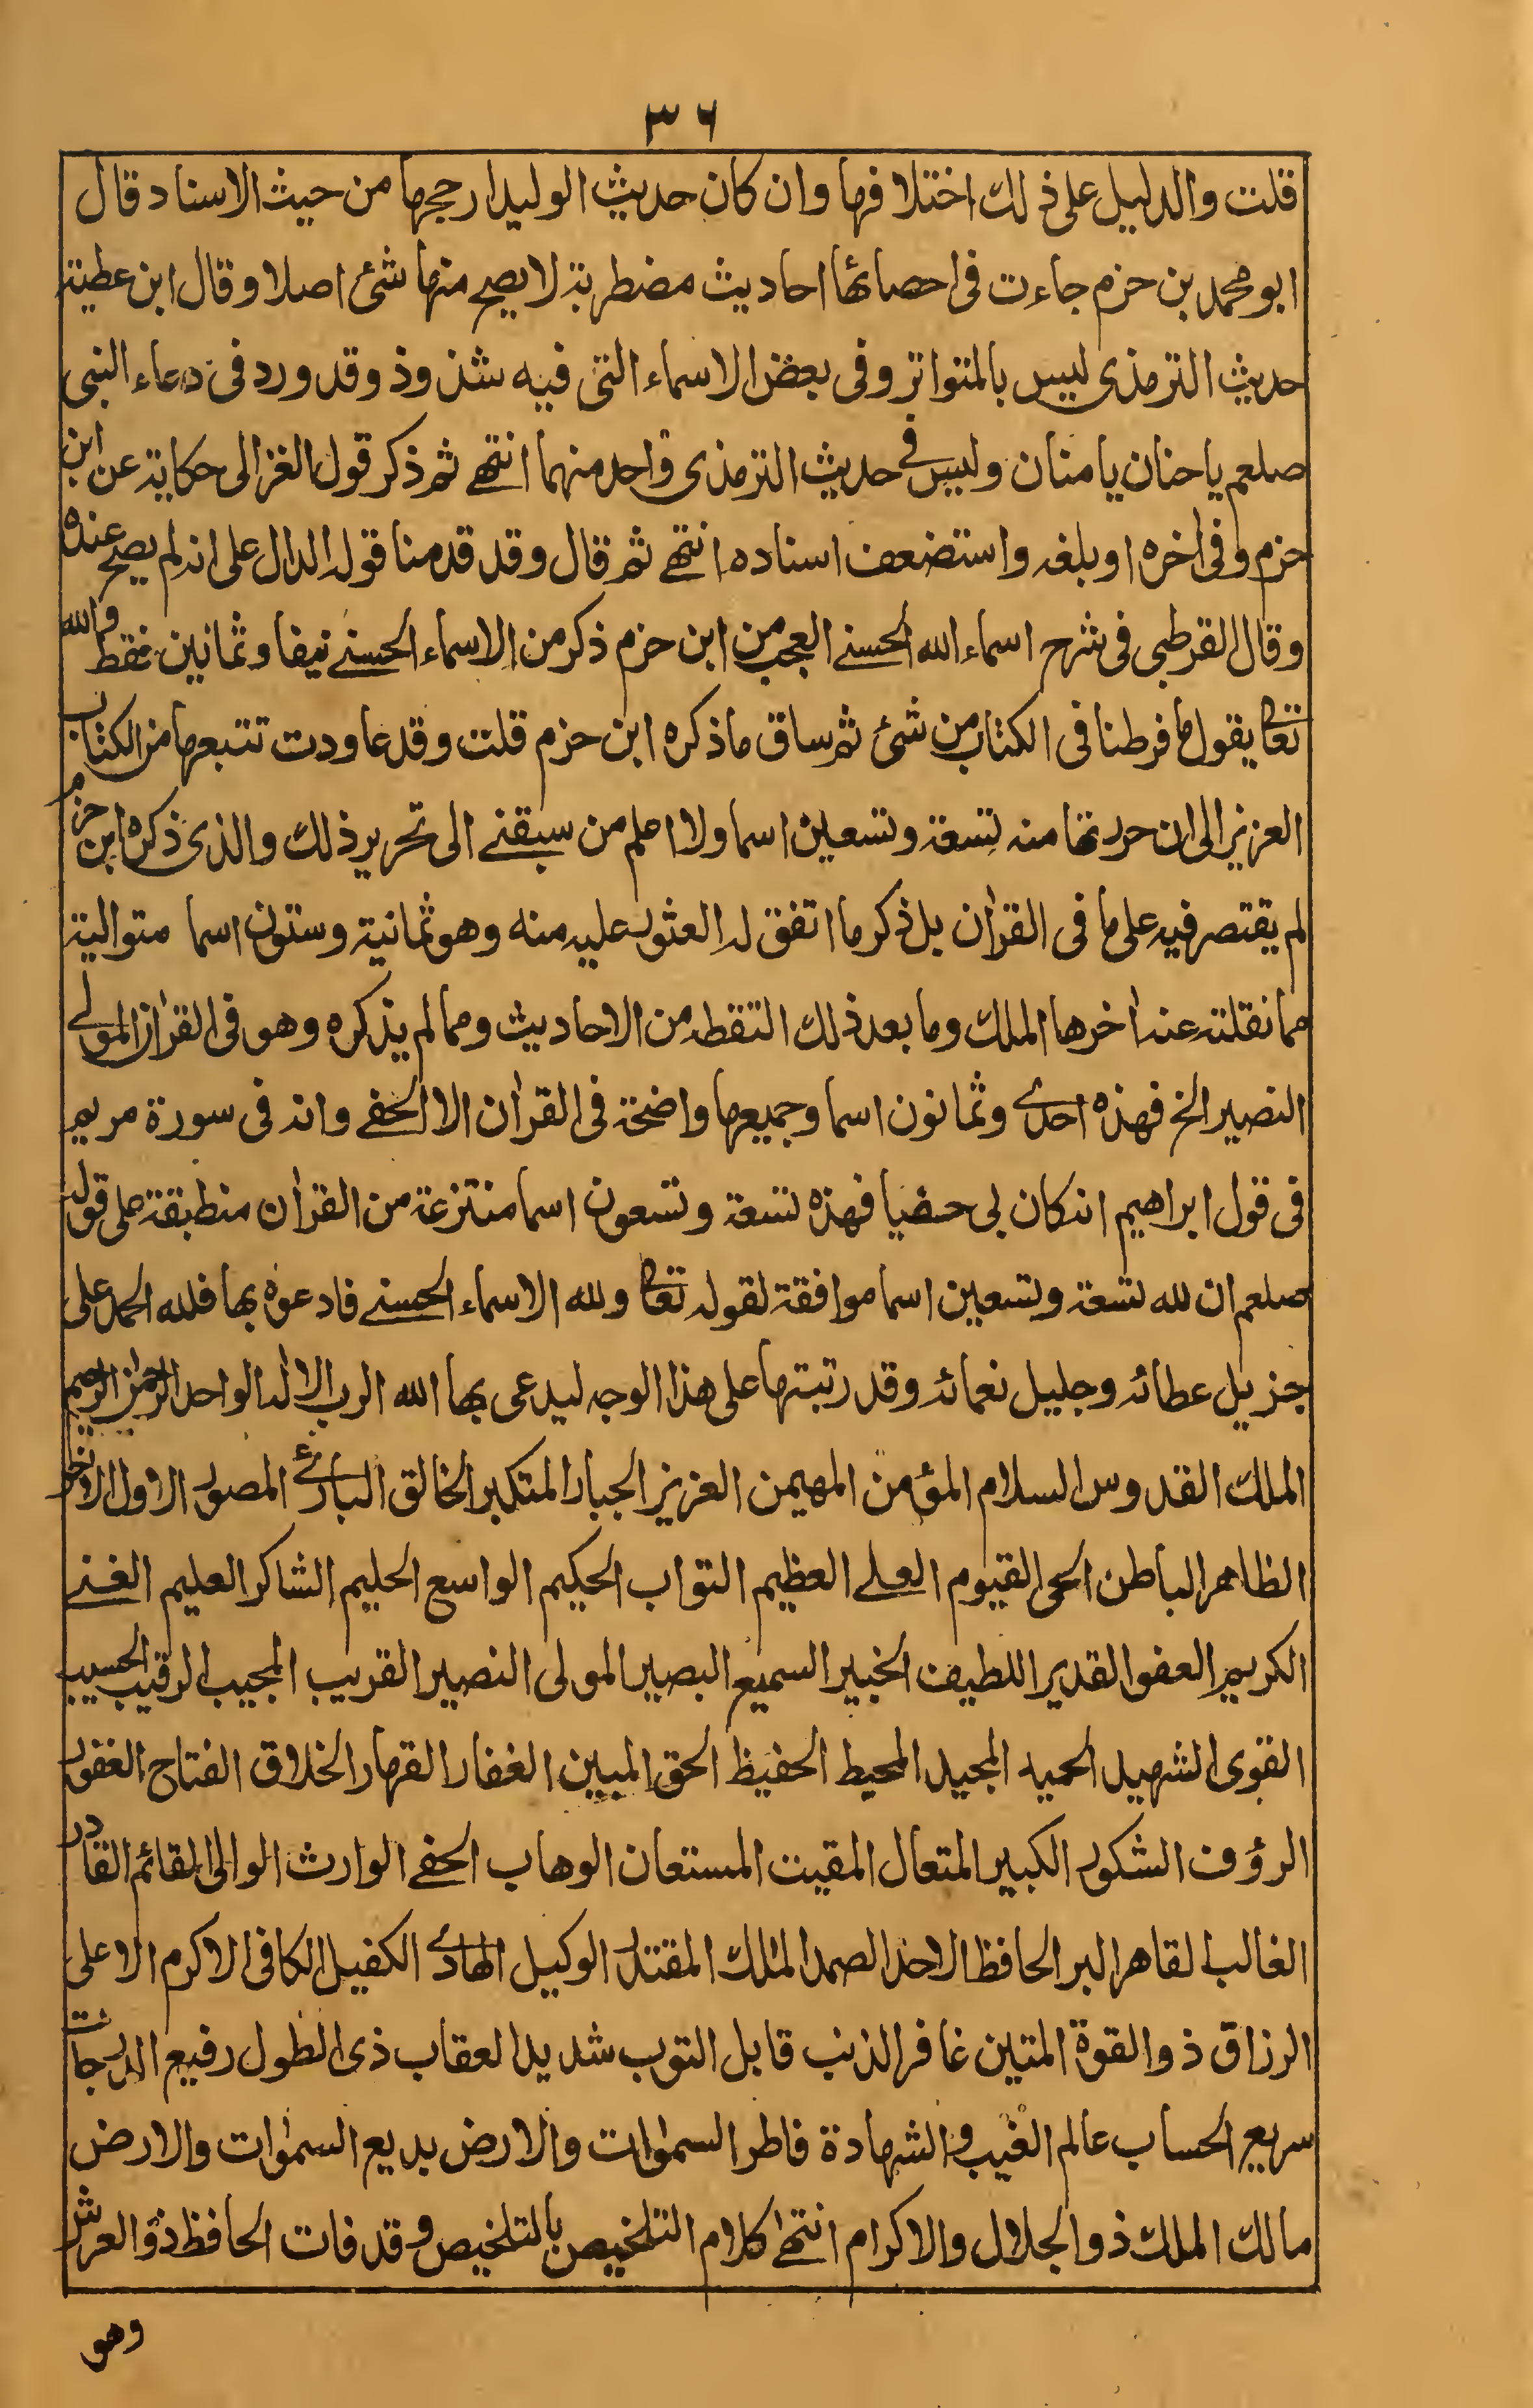 ٣٦
قلت والدليل على ذلك اختلافها وان كان حديث الوليد ارجحها من حيث الاسناد قال
ابو محمد بن حزم جاءت فى احصائها احاديث مضطربة لا يصح منها شئ اصلا وقال ابن عطية
حديث الترمذى ليس بالمتواتر وفى بعض الاسماء التى فيه شذوذ وقد ورد فى دعاء النبى
صلعم يا حنان يا منان وليس فى حديث الترمذى واحد منهما انتهى ثم ذكر قول الغزالى حكاية عن ابن
حزم وفى اخره او بلغه واستضعف اسناده انتهى ثم قال وقد قدمنا قوله الدال على انه لم يصح عنده
وقال القرطبى فى شرح اسماء الله الحسنى العجب من ابن حزم ذكر من الاسماء الحسنى نيفا وثمانين فقط والله
تعالى يقول ما فرطنا فى الكتاب من شئ ثم ساق ما ذكره ابن حزم قلت وقد عاودت تتبعها من الكتاب
العزيز الى ان حررتها منه تسعة وتسعين اسما ولا اعلم من سبقنى الى تحرير ذلك والذى ذكره ابن حزم
لم يقتصر فيه على ما فى القران بل ذكر ما اتفق له العثور عليه منه وهو ثمانية وستون اسما متوالية
مما نقلته عنه اخرها الملك وما بعد ذلك التقطه من الاحاديث ومما لم يذكره وهو فى القران المولى
النصير الخ فهذه احدى وثمانون اسما وجميعها واضحة فى القران الا الحفى وانه فى سورة مريم
فى قول ابراهيم انه كان بى حفيا فهذه تسعة وتسعون اسما منتزعة من القران منطبقة على قوله
صلعم ان لله تسعة وتسعين اسما موافقة لقوله تعالى ولله الاسماء الحسنى فادعوه بها فلله الحمد على
جزيل عطائه وجليل نعمائه وقد رتبتها على هذا الوجه ليدعى بها الله الرب الاله الواحد الرحمن الرحيم
الملك القدوس السلام المؤمن المهيمن العزيز الجبار المتكبر الخالق البارئ المصور الاول الاخر
الظاهر الباطن الحى القيوم العلى العظيم التواب الحكيم الواسع الحليم الشاكر العليم الغنى
الكريم العفو القدير اللطيف الخبير السميع البصير المولى النصير القريب المجيب الرقيب الحسيب
القوى الشهيد الحميد المجيد المحيط الحفيظ الحق المبين الغفار القهار الخلاق الفتاح الغفور
الرؤف الشكور الكبير المتعال المقيت المستعان الوهاب الحفى الوارث الوالى القائم القادر
الغالب القاهر البر الحافظ الاحد الصمد الملك المقتدر الوكيل الهادى الكفيل الكافى الاكرم الاعلى
الرزاق ذو القوة المتين غافر الذنب قابل التوب شديد العقاب ذى الطول رفيع الدرجات
سريع الحساب عالم الغيب والشهادة فاطر السموات والارض بديع السموات والارض
مالك الملك ذو الجلال والاكرام انتهى كلام التلخيص بالتلخيص وقد فات الحافظ ذو العرش
وهو